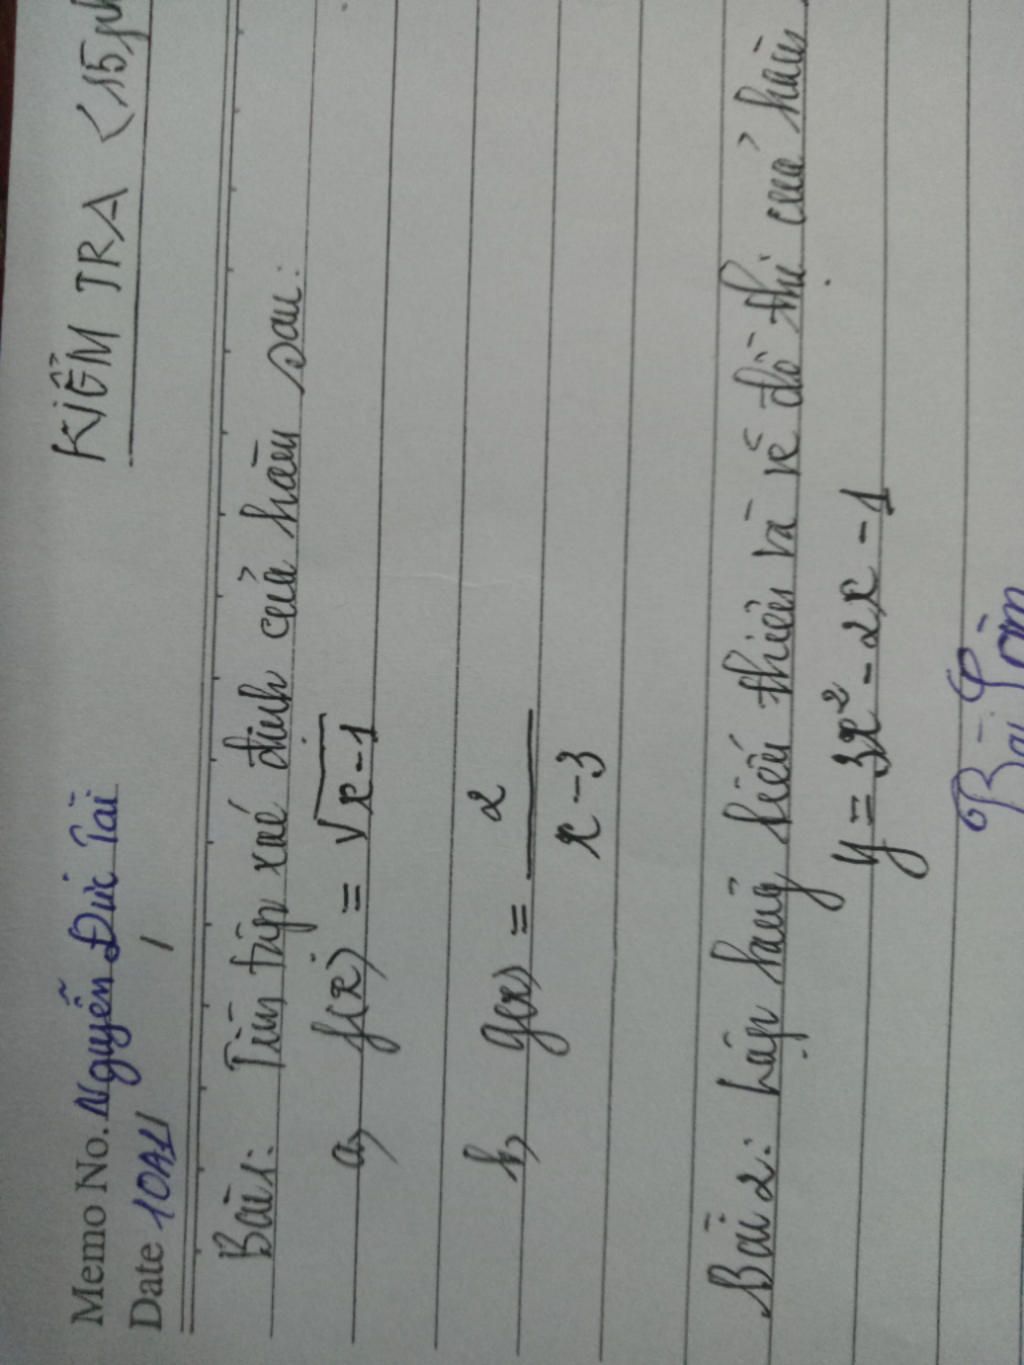 Memo No. Nguyễn Đức Tài
Date 10A1
KIỂM TRA (15 ph
Bài 1: Tìm tập xác định của hàm sau:
a, f(x) = √x-1
b, g(x) = 2
x-3
Bài 2: Lập bảng biến thiên và vẽ đồ thị của hàm
y = 3x² - 2x - 1
Bài Làm